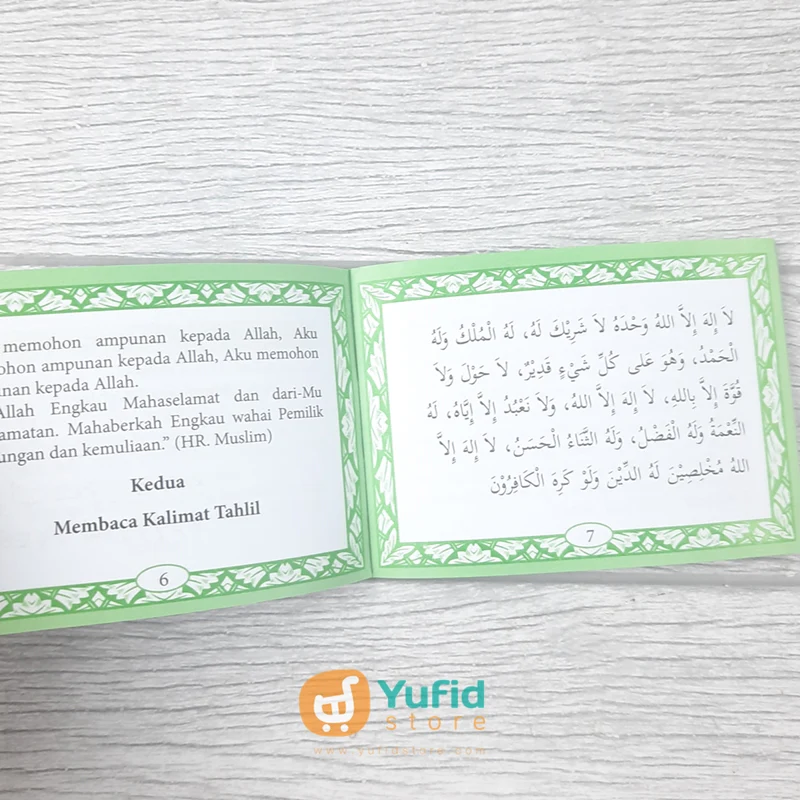 memohon ampunan kepada Allah, Aku
ampunan kepada Allah, Aku memohon
kepada Allah.
Allah Engkau Mahaselamat dan dari-Mu
Mahaberkah Engkau wahai Pemilik
dan kemuliaan.” (HR. Muslim)
Kedua
Membaca Kalimat Tahlil
6
لاَ إِلهَ إِلاَّ اللهُ وَحْدَهُ لاَ شَرِيْكَ لَهُ، لَهُ الْمُلْكُ وَلَهُ
الْحَمْدُ، وَهُوَ عَلى كُلِّ شَيْءٍ قَدِيْرٌ، لاَ حَوْلَ وَلاَ
قُوَّةَ إِلاَّ بِاللهِ، لاَ إِلهَ إِلاَّ اللهُ، وَلاَ نَعْبُدُ إِلاَّ إِيَّاهُ، لَهُ
النِّعْمَةُ وَلَهُ الْفَضْلُ، وَلَهُ الثَّنَاءُ الْحَسَنُ، لاَ إِلهَ إِلاَّ
اللهُ مُخْلِصِيْنَ لَهُ الدِّيْنَ وَلَوْ كَرِهَ الْكَافِرُوْنَ
7
Yufid
store
www.Yufidstore.com